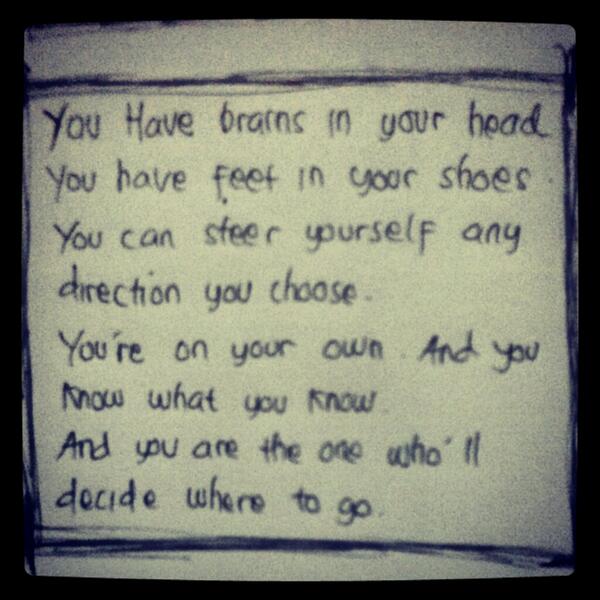 You Have brains in your head
You have feet in your shoes.
You can steer yourself any
direction you choose.
You're on your own. And you
know what you know.
And you are the one who'll
decide where to go.